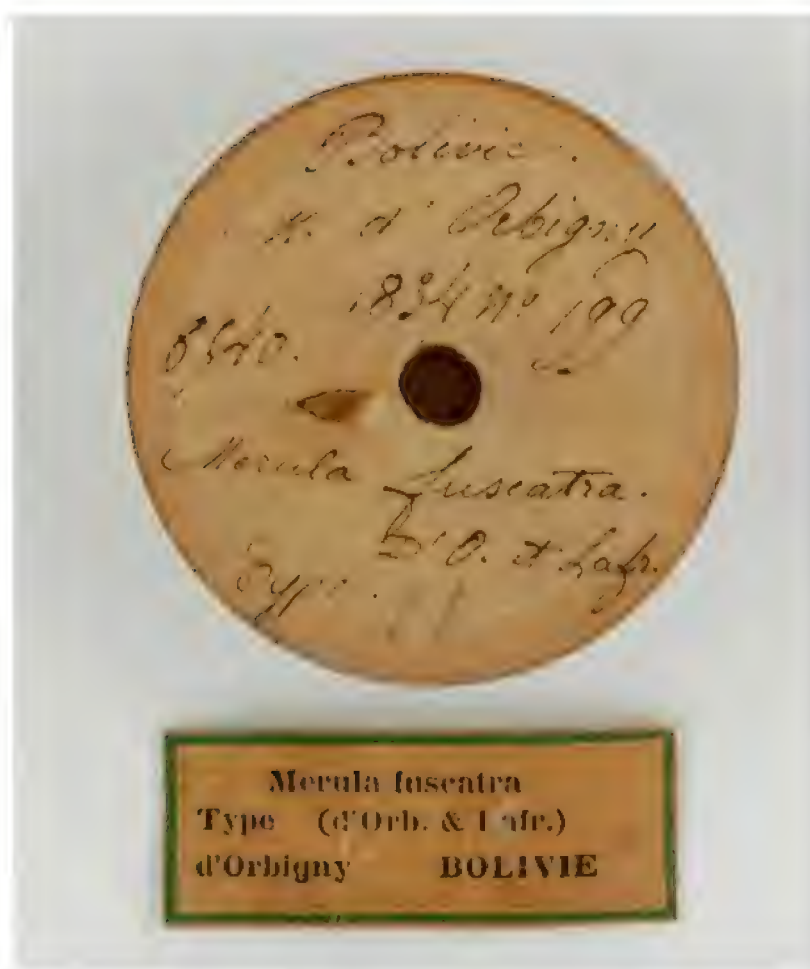 Bolivie.
M. d'Orbigny
1834 nº 199
Merula fuscatra.
D'O. & Lafr.
Type.
Merula fuscatra
Type (d'Orb. & Lafr.)
d'Orbigny BOLIVIE